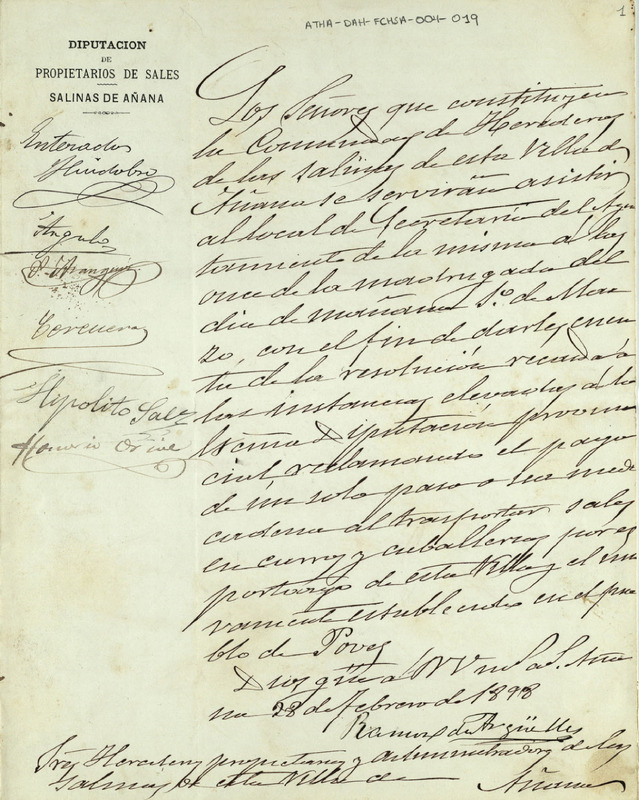 ATHA-DAH-FCHSA-004-019
1
DIPUTACION
DE
PROPIETARIOS DE SALES
SALINAS DE AÑANA
Enterados
Huidobro
Angulo
Corcuera
Hypolito Salz
Honorio Orive
Los Señores que constituyen
la Comunidad de Herederos
de las salinas de esta Villa de
Añana se servirán asistir
al local de Secretaría del Ayun
tamiento de la misma á las
once de la madrugada del
dia de mañana 1º de Mar
zo, con el fin de darles cuen
ta de la resolución recaida á
las instancias elevadas á la
Excma Diputación provin
cial reclamando el pago
de un solo paso o sea media
cadena al trasportar sales
en carros y caballerias por el
portazgo de esta Villa y el nue
vamente establecido en el pue
blo de Poves
Dios gũe á VV m.s a.s Aña
na 28 de febrero de 1898
Ramon de Argüelles
Sres Herederos propietarios y administradores de las
Salinas de esta Villa de Añana